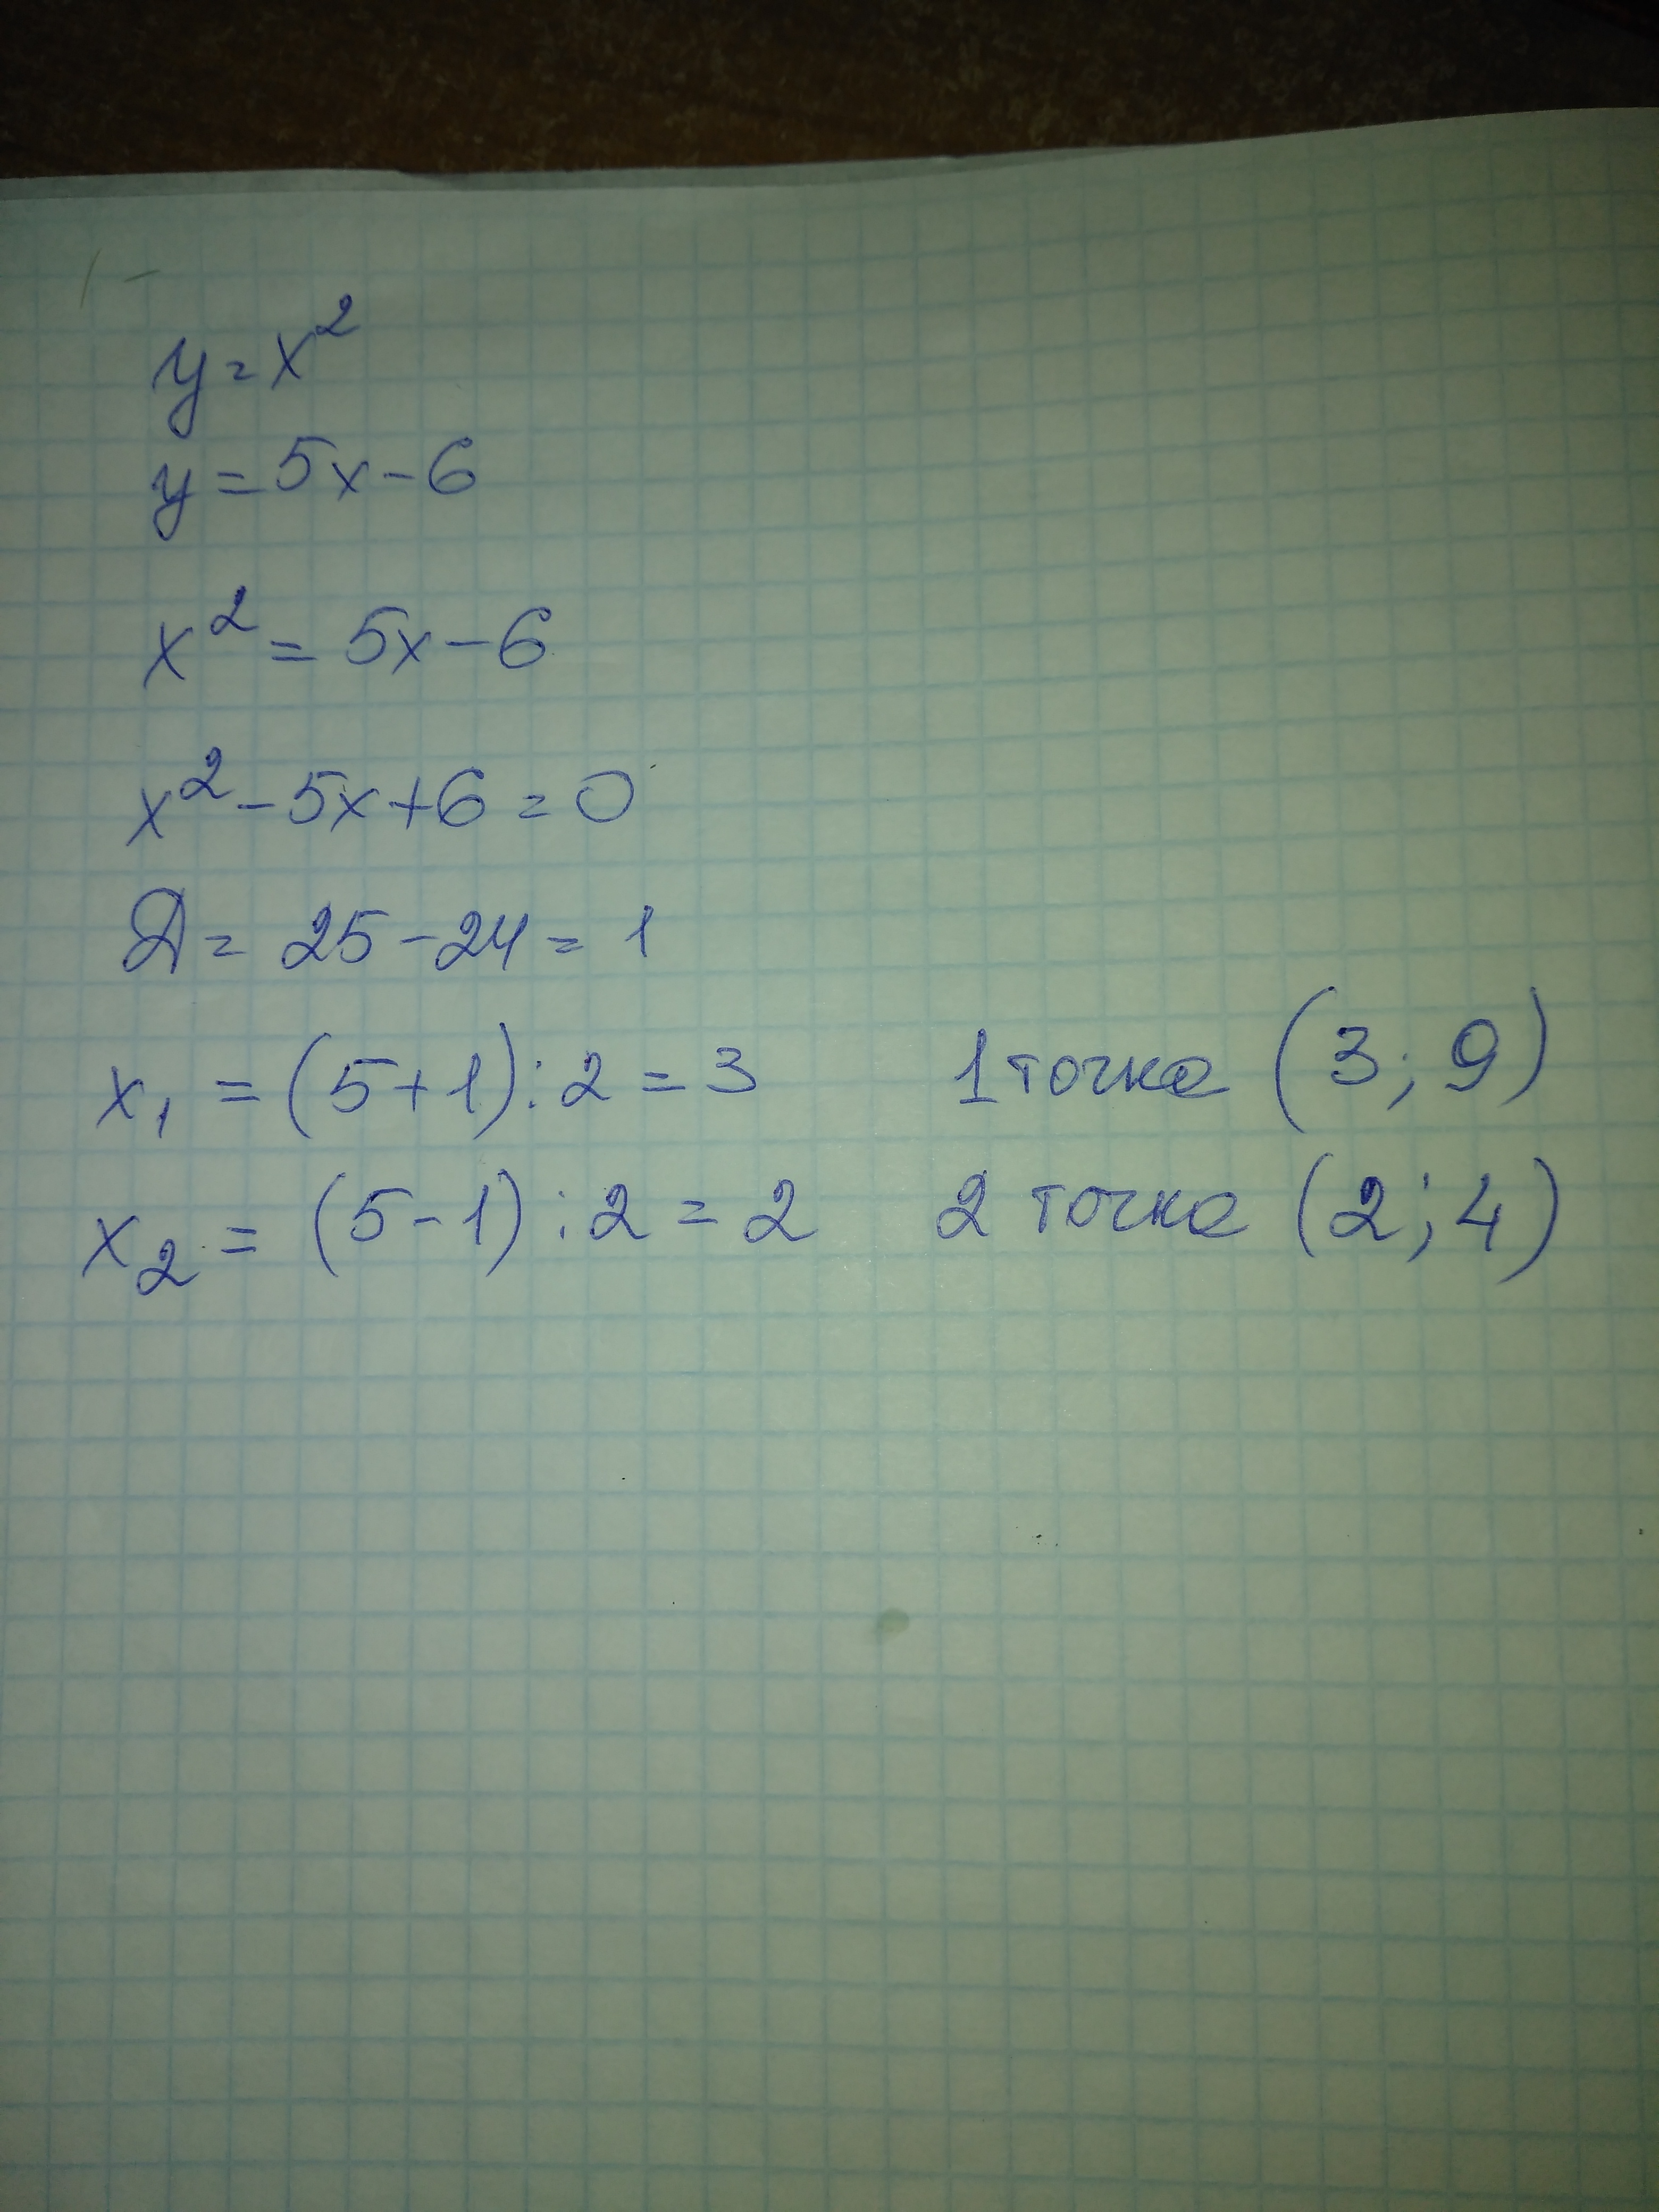 y = x²
y = 5x - 6
x² = 5x - 6
x² - 5x + 6 = 0
Д = 25 - 24 = 1
x₁ = (5+1) : 2 = 3 1 точка (3; 9)
x₂ = (5-1) : 2 = 2 2 точка (2; 4)